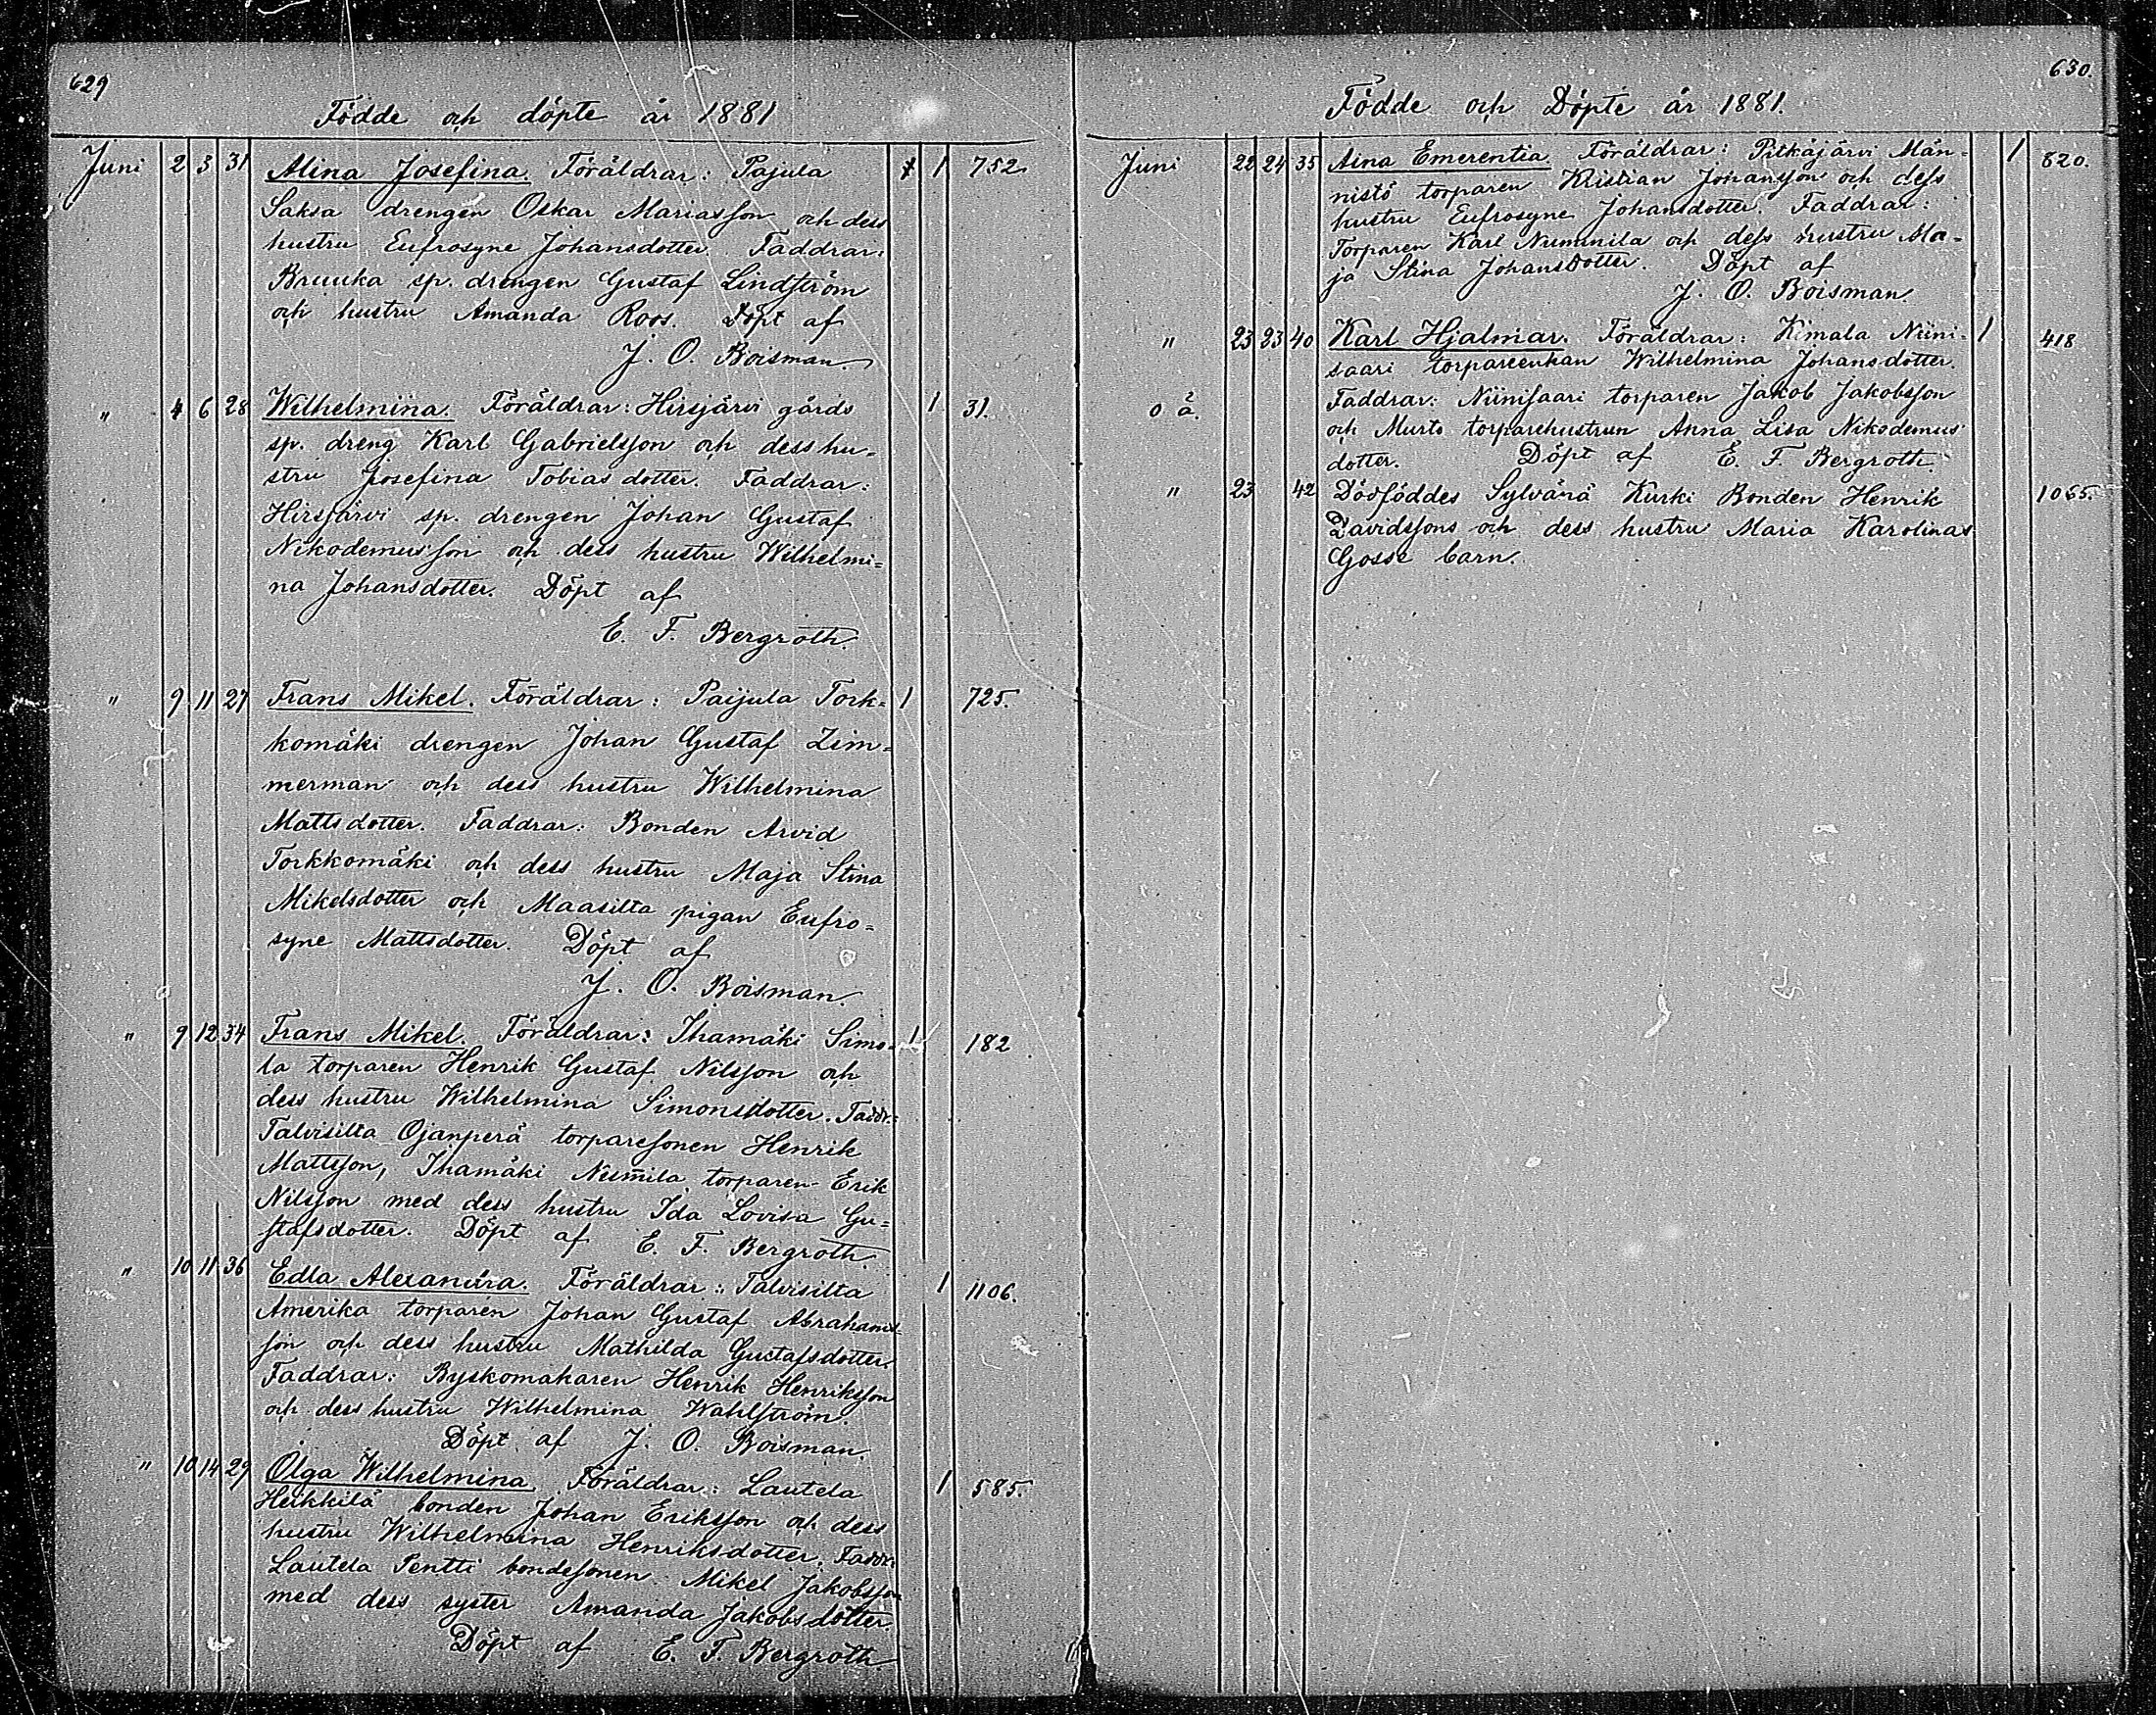 629
Födde och döpte år 1881
Juni 2 3 31 Alina Josefina. Föräldrar: Pajula 1 752.
Saksa drengen Oskar Mariasson och dess
hustru Eufrosyne Johansdotter. Faddrar:
Bruuka sp. drengen Gustaf Lindström
och hustru Amanda Roos. Döpt af
J. O. Boisman.
" 4 6 28 Wilhelmina. Föräldrar: Hirsjärvi gårds 1 31.
sp. dreng Karl Gabrielsson och dess hu=
stru Josefina Tobiasdotter. Faddrar:
Hirsjärvi sp. drengen Johan Gustaf
Nikodemusson och dess hustru Wilhelmi=
na Johansdotter. Döpt af
E. F. Bergroth.
" 9 11 27 Frans Mikel. Föräldrar: Paijula Tork= 1 725.
komäki drengen Johan Gustaf Zim=
merman och dess hustru Wilhelmina
Mattsdotter. Faddrar: Bonden Arvid
Torkkomäki och dess hustru Maja Stina
Mikelsdotter och Maasilta pigan Eufro=
syne Mattsdotter. Döpt af
J. O. Boisman.
" 9 12 34 Frans Mikel. Föräldrar: Ihamäki Simo= 1 182
la torparen Henrik Gustaf Nilsson och
dess hustru Wilhelmina Simonsdotter. Faddr:
Talvisilta Ojanperä torparesonen Henrik
Mattsson, Ihamäki Num̄ila torparen Erik
Nilsson med dess hustru Ida Lovisa Gu=
stafsdotter. Döpt af E. F. Bergroth.
" 10 11 36 Edla Alexandra. Föräldrar: Talvisilta 1 1106.
Amerika torparen Johan Gustaf Abrahams=
son och dess hustru Mathilda Gustafsdotter.
Faddrar: Byskomakaren Henrik Henriksson
och dess hustru Wilhelmina Wahlström.
Döpt af J. O. Boisman.
" 10 14 29 Olga Wilhelmina. Föräldrar: Lautela 1 585.
Heikkilä bonden Johan Eriksson och dess
hustru Wilhelmina Henriksdotter. Faddr:
Lautela Pentti bondesonen Mikel Jakobsson
med dess syster Amanda Jakobsdotter.
Döpt af E. F. Bergroth
630.
Födde och Döpte år 1881.
Juni 22 24 35 Aina Emerentia. Föräldrar: Pitkäjärvi Män= 1 820.
nistö torparen Kristian Johansson och dess
hustru Eufrosyne Johansdotter. Faddrar:
Torparen Karl Nummila och dess hustru Ma=
ja Stina Johansdotter. Döpt af
J. O. Boisman.
" 23 23 40 Karl Hjalmar. Föräldrar: Kimala Niini= 1 418
saari torpareenkan Wilhelmina Johansdotter.
o ä. Faddrar: Niinisaari torparen Jakob Jakobsson
och Murto torparehustrun Anna Lisa Nikodemus
dotter. Döpt af E. F. Bergroth.
" 23 42 Dödföddes Sylvänä Kurki Bonden Henrik 1065.
Davidssons och dess hustru Maria Karolinas
Gosse barn.